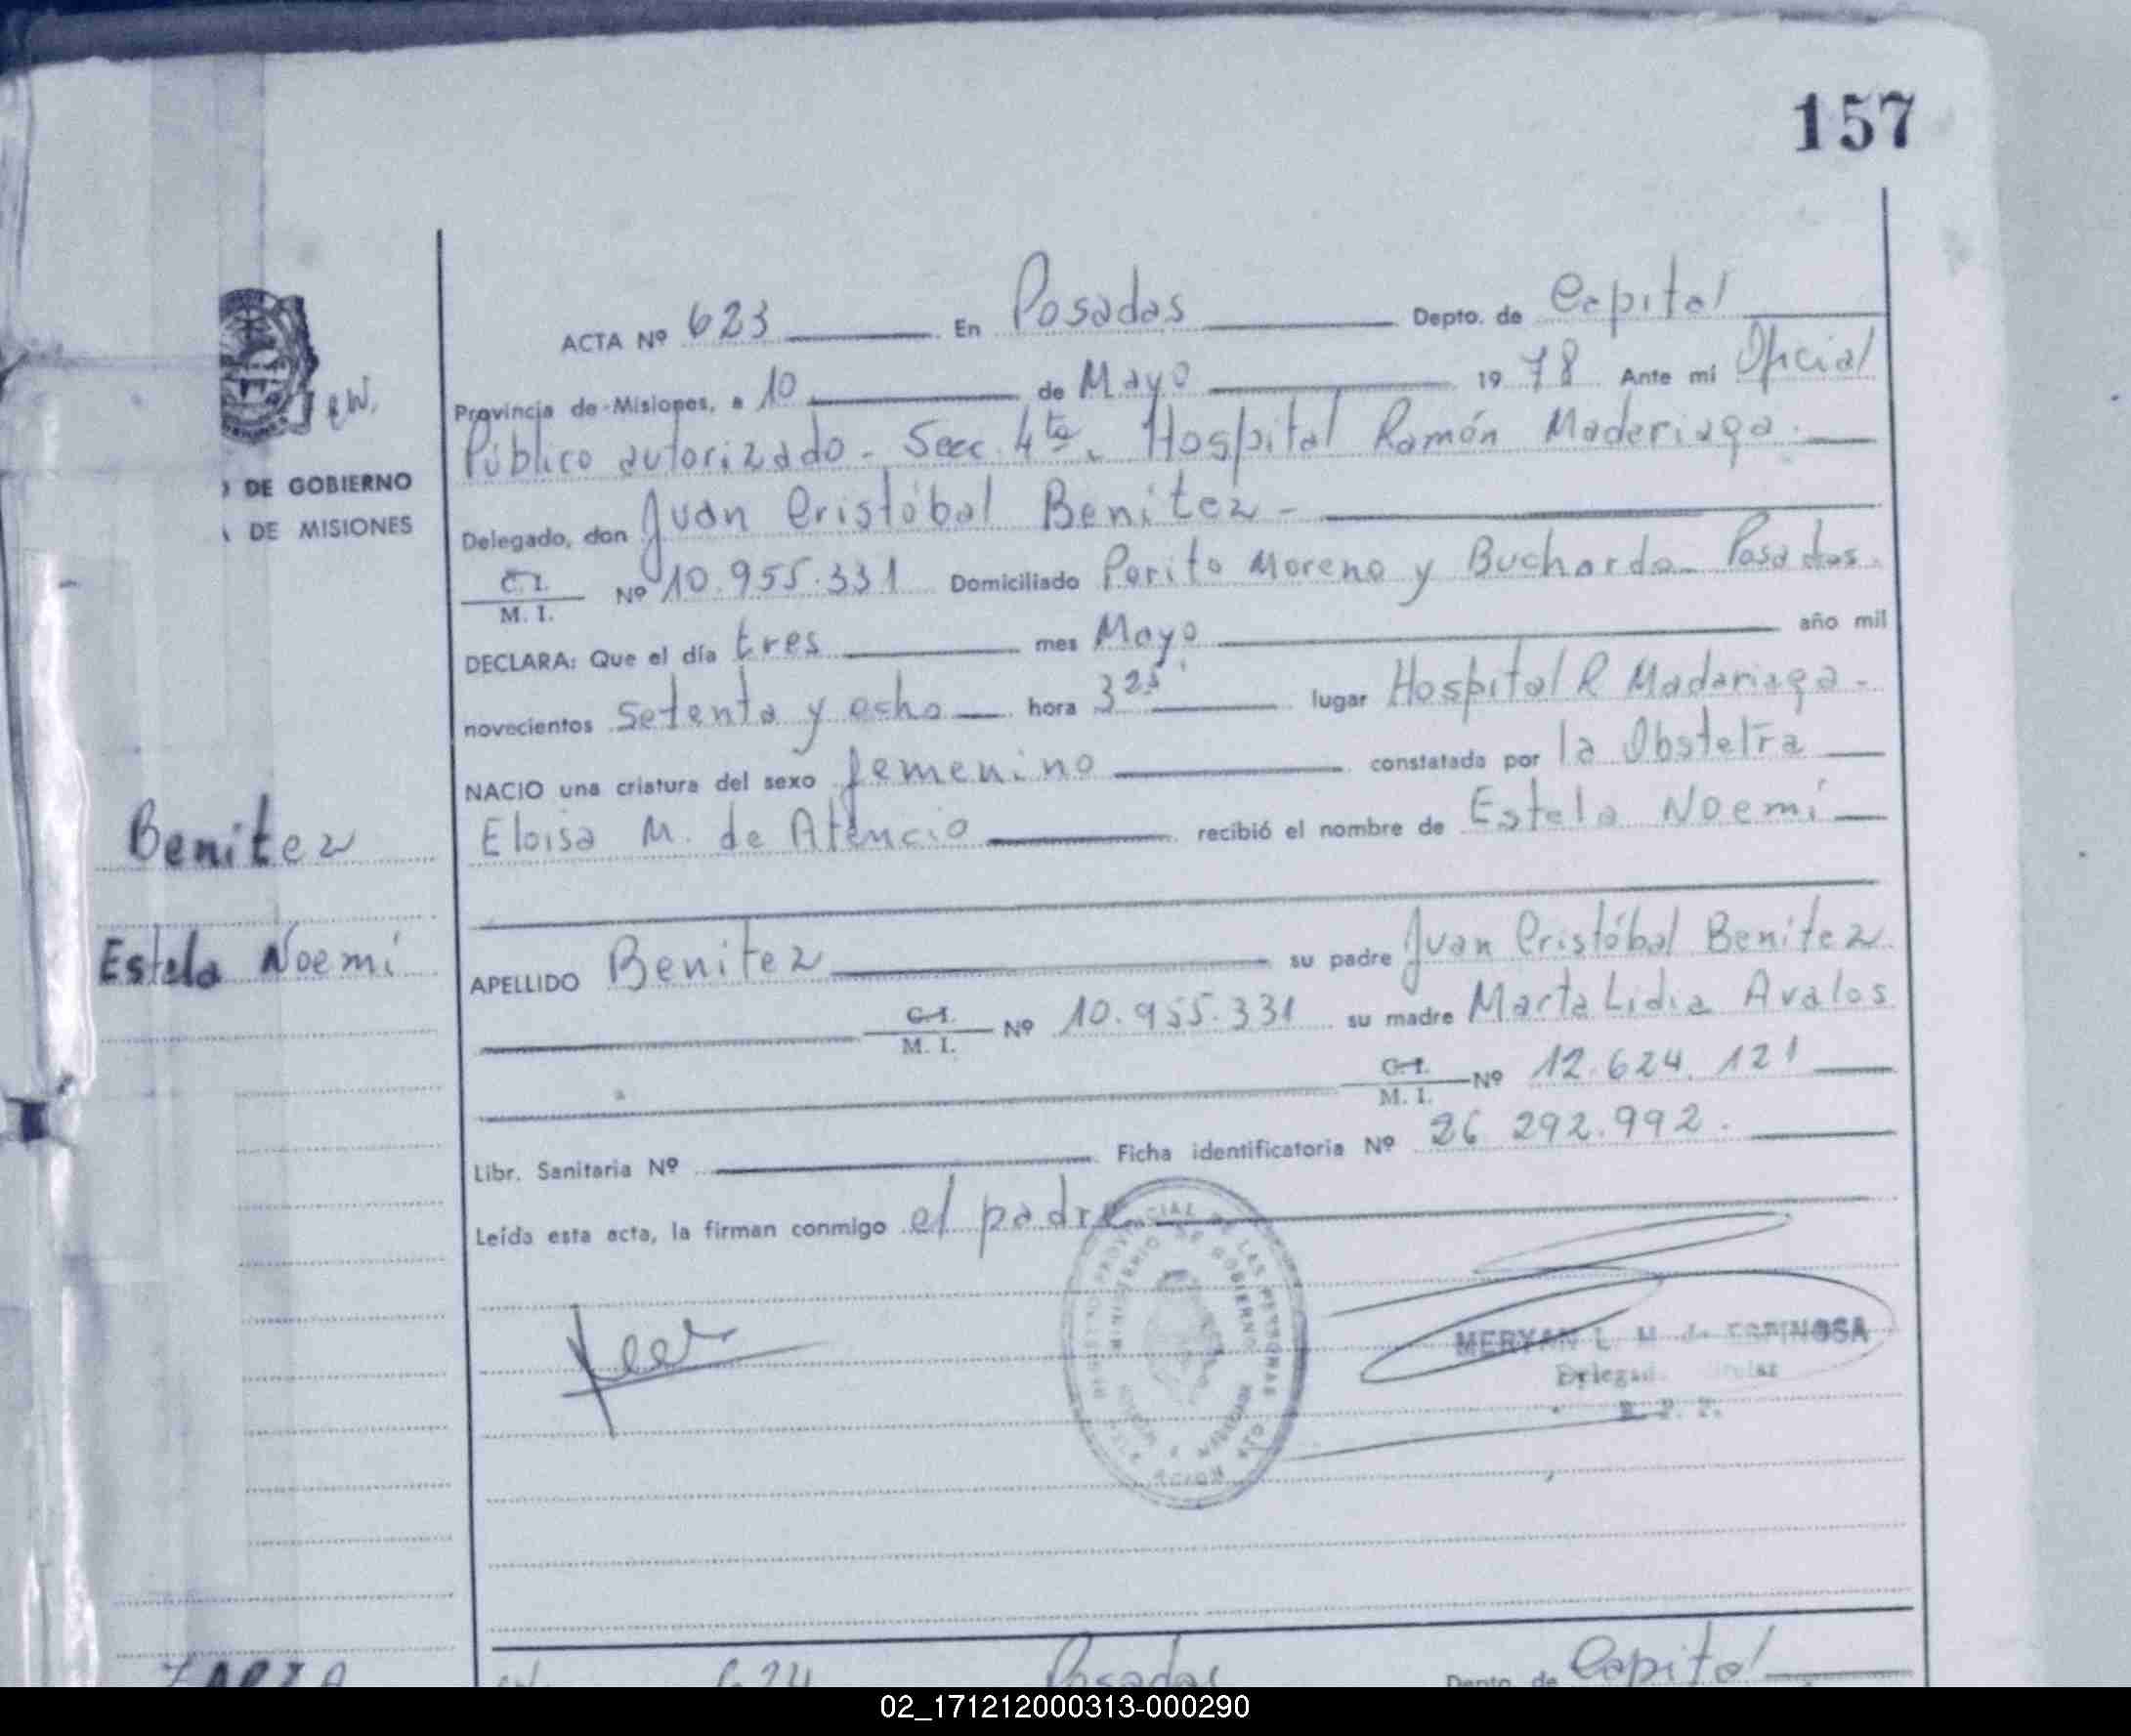 157
ACTA Nº 623 En Posadas Depto. de Capital
Provincia de Misiones, a 10 de Mayo 1978 Ante mi Oficial
Público autorizado - Secc. 4ta. Hospital Ramón Maderiaga.
DE GOBIERNO
DE MISIONES
Delegado, don Juan Cristóbal Benitez -
C. I.
M. I. Nº 10.955.331 Domiciliado Perito Moreno y Buchardo - Posadas.
DECLARA: Que el día tres mes Mayo año mil
novecientos setenta y ocho hora 3 25' lugar Hospital R Madariaga -
NACIO una criatura del sexo femenino constatada por la Obstetra
Benitez
Eloisa M. de Atencio recibió el nombre de Estela Noemí
Estela Noemí
APELLIDO Benitez su padre Juan Cristóbal Benitez
C. I.
M. I. Nº 10.955.331 su madre Marta Lidia Avalos
C. I.
M. I. Nº 12.624.121
Libr. Sanitaria Nº Ficha identificatoria Nº 26 292.992.
Leída esta acta, la firman conmigo el padre
MERYAN L. M. de ESPINOSA
624 Posadas Depto. de Capital
02_171212000313-000290